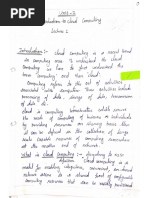 Unit-I
Introduction to Cloud Computing
Lecture 1
Introduction :- Cloud Computing is a recent trend
in computing area to understand the cloud
computing we have to first understand the
term "Computing" and then cloud.
Computing refers to the set of activities
associated with computation. These activities include
processing of data, storage of data, transmission
of data etc.
Computing infrastructure which moves
the needs of individual organization to another
by providing resources on sharing basis. Thus
it can be defined as a specialised form of
distributed Computing where virtualized resources
are available as a service over the internet
at the service end of network.
What is Cloud Computing :- According to NIST
Definition Cloud Computing is a
model for enabling ubiquitous, convenient, on-demand
network access to a shared pool of configured
computing resources that can be rapidly provisioned